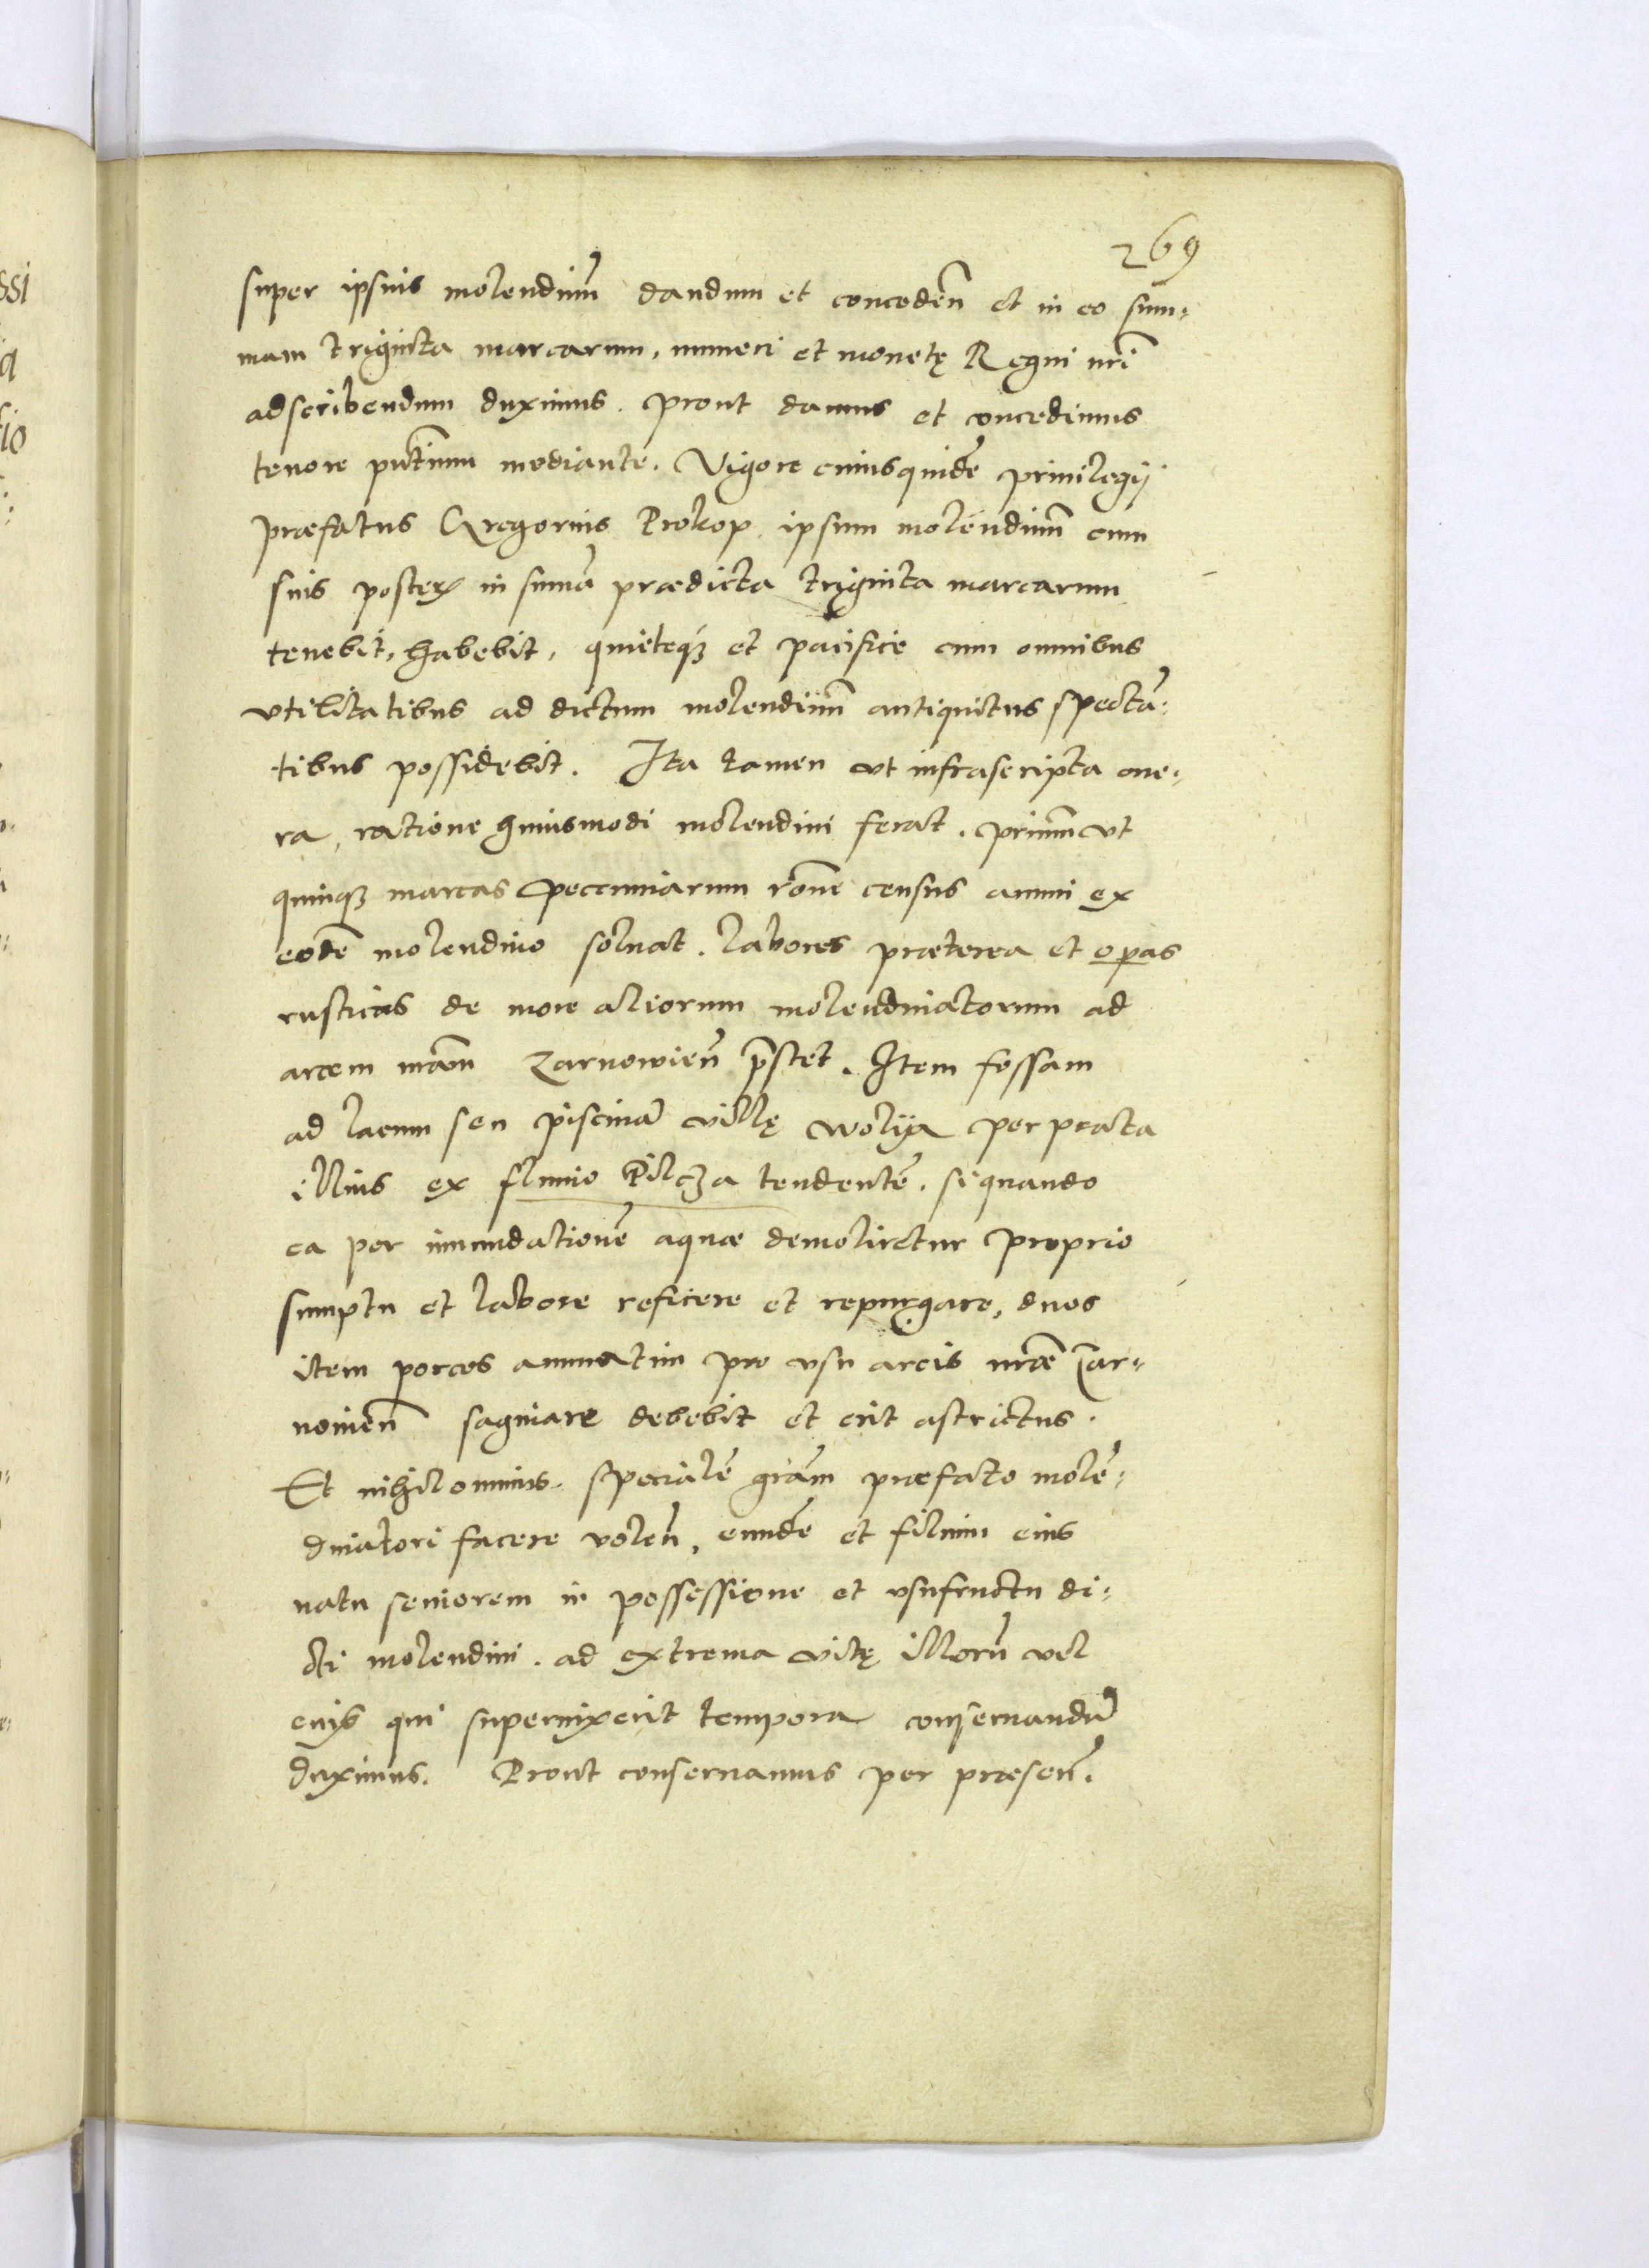 269
super ipsius molendinũ dandum et conceden̄ et in eo sum⸗
mam triginta marcarum, numeri et monetę Regni nr̃i
adscribendum duximus. prout damus et concedimus
tenore pñtium mediante. Vigore cuiusquidẽ priuilegij
præfatus Gregorius Prokop ipsum molendinũ cum
suis posteris in sum̃a prædicta triginta marcarum
tenebit, habebit, quieteq₃ et pacifice cum omnibus
vtilitatibus ad dictum molendinũ antiquitus spectã⸗
tibus possidebit. Ita tamen vt infrascripta one⸗
ra, ratione huiusmodi molendini ferat. primũ vt
quinq₃ marcas peccuniarum rõne census annui ex
eodẽ molendino soluat. labores præterea et op̱as
rusticas de more aliorum molendinatorum ad
arcem nr̃am Zarnowien̄ p̃stet. Item fossam
ad lacum seu piscinã villę wolija per prata
illius ex fluuio Pilcza tendentẽ. si quando
ea per inundationẽ aquæ demoliretur proprio
sumptu et labore reficere et repurgare, duos
item porcos annuatim pro vsu arcis nr̃æ Zar⸗
nouien̄ saginare debebit et erit astrictus.
Et nihilominus specialẽ gr̃am præfato molẽ⸗
dinatori facere volen̄, eundẽ et filium eius
natu seniorem in possessione et vsufructu di⸗
cti molendini. ad extrema vitę illorũ vel
eius qui superuixerit tempora conseruandũ
duximus. Prout conseruamus per præsen̄.